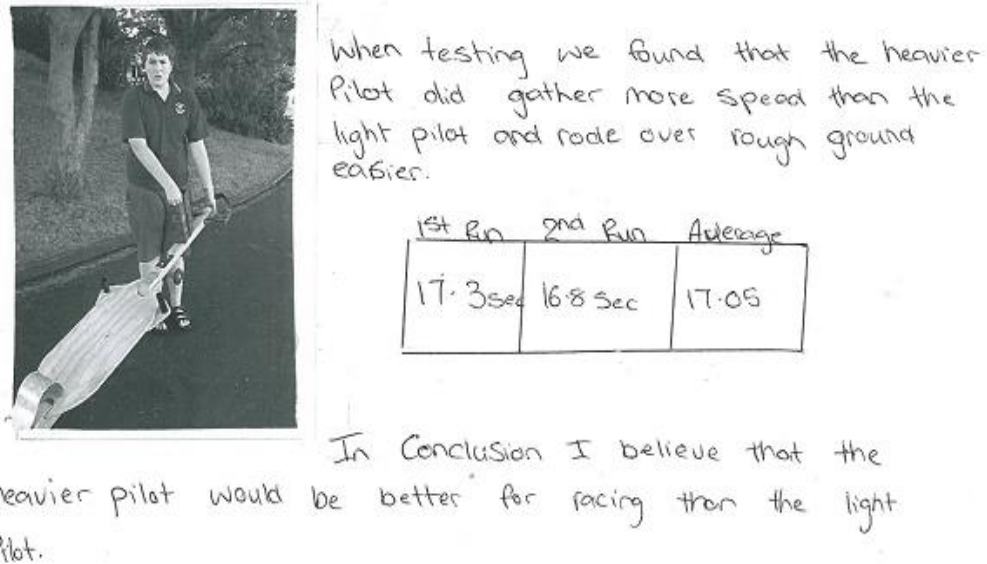 When testing we found that the heavier
Pilot did gather more speed than the
light pilot and rode over rough ground
easier.
1st Run 2nd Run Average
17.3sec 16.8 Sec 17.05
In Conclusion I believe that the
heavier pilot would be better for racing than the light
Pilot.